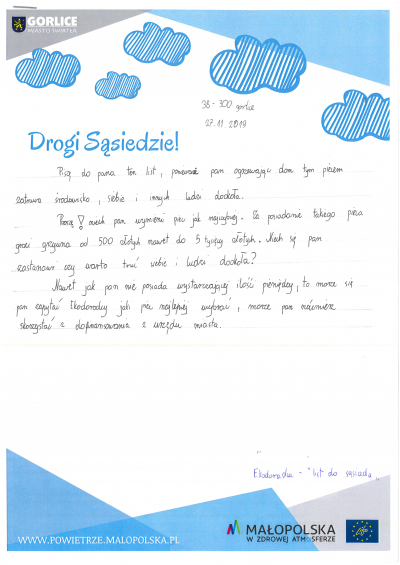 GORLICE
MIASTO ŚWIATŁA
38-300 gorlice
27.11.2019
Drogi Sąsiedzie!
Piszę do pana ten list, ponieważ pan ogrzewając dom tym piecem
zatruwa środowisko, siebie i innych ludzi dookoła.
Proszę! niech pan wymieni piec jak najszybciej. Za posiadanie takiego pieca
grozi grzywna od 500 złotych nawet do 5 tysięcy złotych. Niech się pan
zastanowi czy warto truć siebie i ludzi dookoła?
Nawet jak pan nie posiada wystarczającej ilość pieniędzy, to może się
pan zapytać Ekodoradcy jaki piec najlepiej wybrać, może pan również
skorzystać z dofinansowania z urzędu miasta.
Ekodoradca - "list do sąsiada"
WWW.POWIETRZE.MALOPOLSKA.PL
MAŁOPOLSKA
W ZDROWEJ ATMOSFERZE